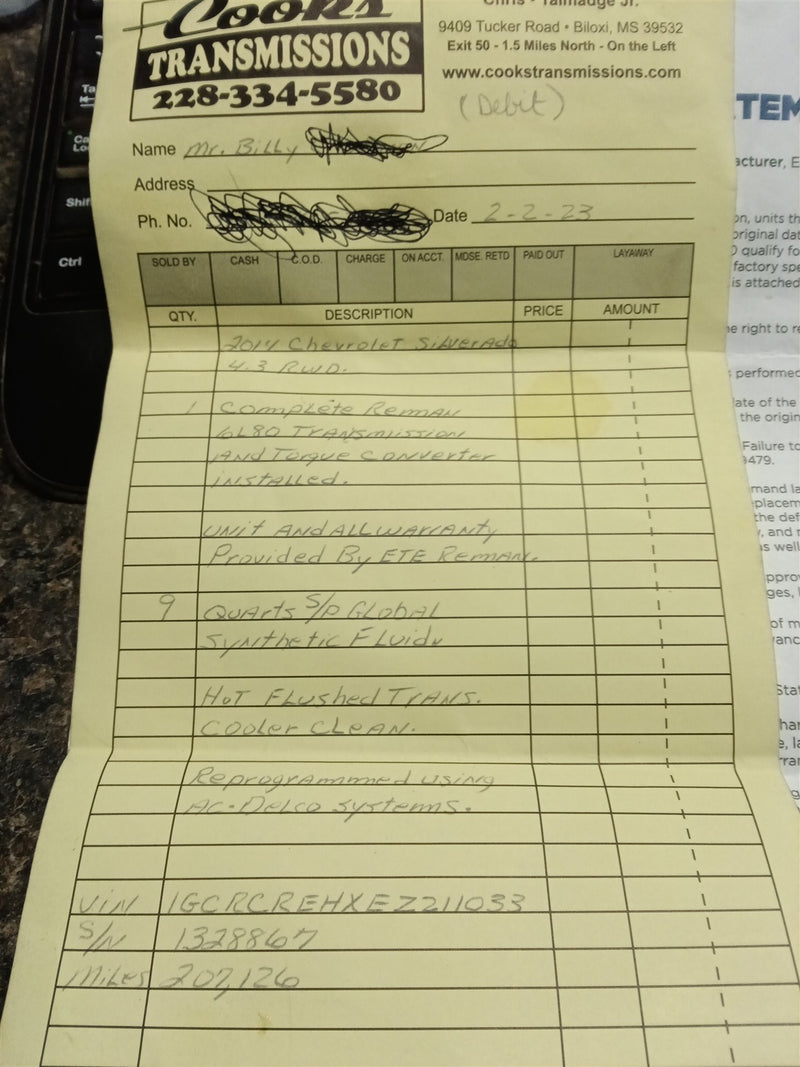 Cooks
TRANSMISSIONS
228-334-5580
Chris - Talmadge Jr.
9409 Tucker Road • Biloxi, MS 39532
Exit 50 - 1.5 Miles North - On the Left
www.cookstransmissions.com
(Debit)
Name Mr. Billy
Address
Ph. No. Date 2-2-23
SOLD BY CASH C.O.D. CHARGE ON ACCT. MDSE. RETD PAID OUT LAYAWAY
QTY. DESCRIPTION PRICE AMOUNT
2014 Chevrolet Silverado
4.3 RWD.
1 Complete Reman
6L80 Transmission
And Torque Converter
installed.
Unit And All Warranty
Provided By ETE Reman.
9 Quarts S/P Global
Synthetic Fluid
Hot Flushed Trans.
Cooler Clean.
Reprogrammed using
Ac-Delco systems.
VIN 1GCRCREHXEZ211033
S/N 1328867
Miles 207,126
Ctrl
TEM
acturer, E
on, units th
original dat
qualify fo
factory spe
is attached
e right to re
performed
ate of the
the origin
Failure to
9479.
mand la
placem
the def
, and r
s well
pprov
ges, l
of m
anc
Stat